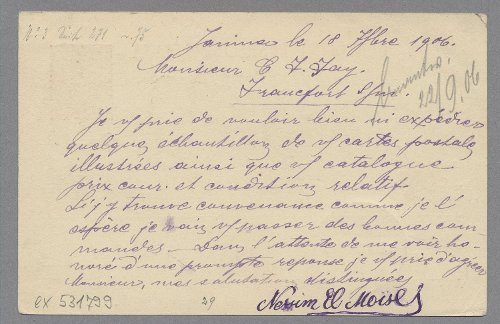 Janina le 18 7bre 1906.
Monsieur C. F. Fay,
Francfort s/m.
22/9.06
Je vs prie de vouloir bien m'expédier
quelques échantillon de vs cartes postales
illustrées ainsi que vs catalogue
prix cour. et condition relatif.
Si j'y trouve convenance comme je l'
espère je vais vs passer des bonnes com
mandes. Dans l'attente de me voir ho
noré d'une prompte réponse je vs prie d'agréer
Monsieur, mes salutation distinguées
Nessim El Moïse
ex 531799
29